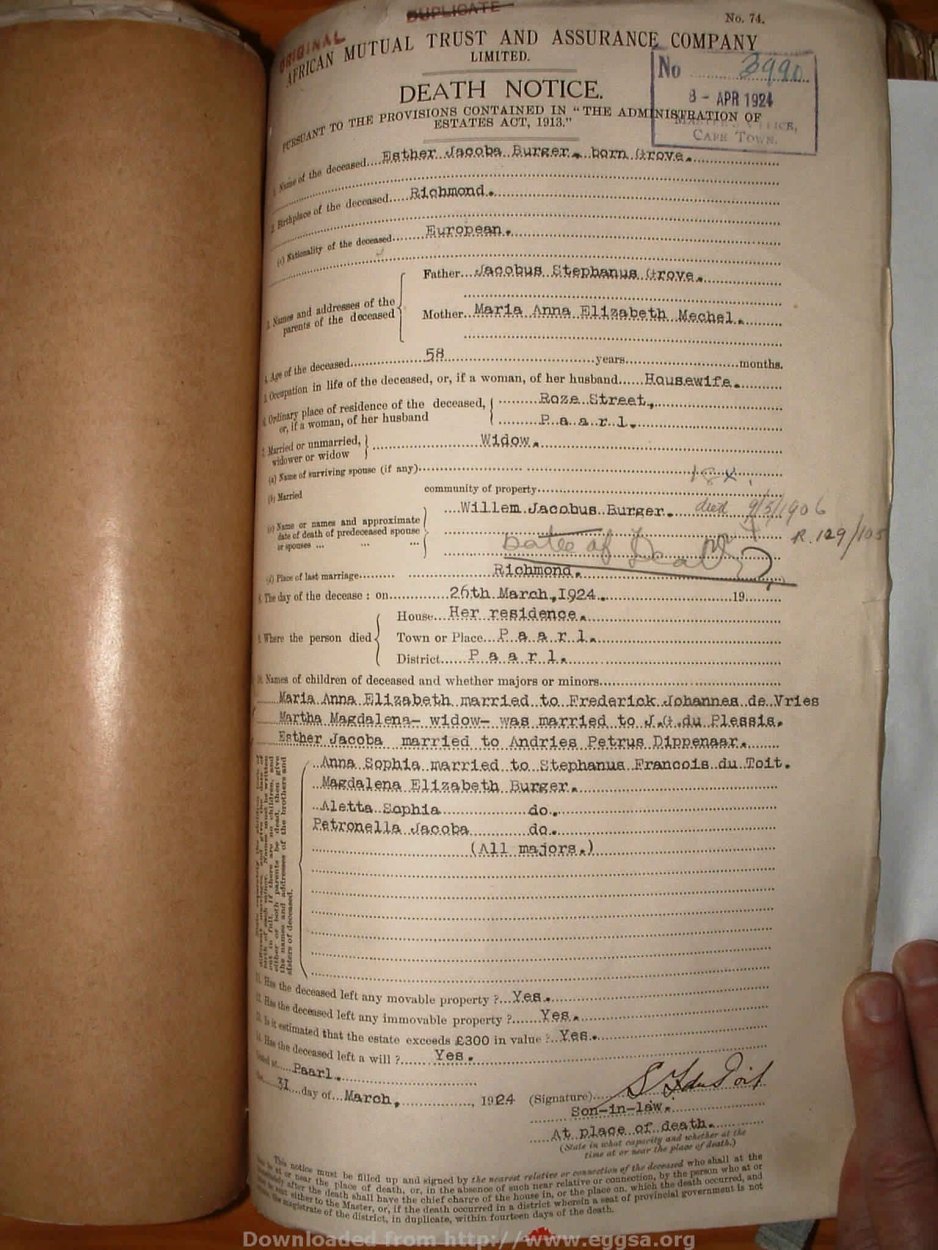 DUPLICATE
ORIGINAL
No. 74.
AFRICAN MUTUAL TRUST AND ASSURANCE COMPANY
LIMITED.
No 3990
8 - APR 1924
CAPE TOWN.
DEATH NOTICE.
PURSUANT TO THE PROVISIONS CONTAINED IN "THE ADMINISTRATION OF
ESTATES ACT, 1913."
1. Name of the deceased....Esther Jacoba Burger, born Grove.
2. Birthplace of the deceased....Richmond.
(c) Nationality of the deceased....European.
3. Names and addresses of the
parents of the deceased
Father....Jacobus Stephanus Grove.
Mother....Maria Anna Elizabeth Mechel.
4. Age of the deceased....58....years....months.
5. Occupation in life of the deceased, or, if a woman, of her husband....Housewife.
6. Ordinary place of residence of the deceased,
or, if a woman, of her husband
Roze Street,
P.a.a.r.l.
7. Married or unmarried,
widower or widow
Widow.
(a) Name of surviving spouse (if any)
(b) Married community of property
(c) Name or names and approximate
date of death of predeceased spouse
or spouses ...
Willem Jacobus Burger. died 9/5/1906
R.129/105
Date of Death?
(d) Place of last marriage....Richmond.
8. The day of the decease: on....26th March, 1924....19....
9. Where the person died
House...Her residence.
Town or Place...P.a.a.r.l.
District...P.a.a.r.l.
10. Names of children of deceased and whether majors or minors
Maria Anna Elizabeth married to Frederick Johannes de Vries
Martha Magdalena- widow- was married to J.G.du Plessis.
Esther Jacoba married to Andries Petrus Dippenaar.
Anna Sophia married to Stephanus Francois du Toit.
Magdalena Elizabeth Burger.
Aletta Sophia do.
Petronella Jacoba do.
(All majors.)
the names and addresses of the brothers and
sisters of deceased.
11. Has the deceased left any movable property ?...Yes.
12. Has the deceased left any immovable property ?....Yes.
13. Is it estimated that the estate exceeds £300 in value ?..Yes.
14. Has the deceased left a will ?....Yes.
Dated at....Paarl.
the 31 day of...March,....1924
(Signature)....S F du Toit
Son-in-law.
At place of death.
(State in what capacity and whether at the
time at or near the place of death.)
This notice must be filled up and signed by the nearest relative or connection of the deceased who shall at the
be at or near the place of death, or, in the absence of such near relative or connection, by the person who at or
immediately after the death shall have the chief charge of the house in, or the place on, which the death occurred, and
be sent either to the Master, or, if the death occurred in a district wherein a seat of provincial government is not
the magistrate of the district, in duplicate, within fourteen days of the death.
Downloaded from http://www.eggsa.org